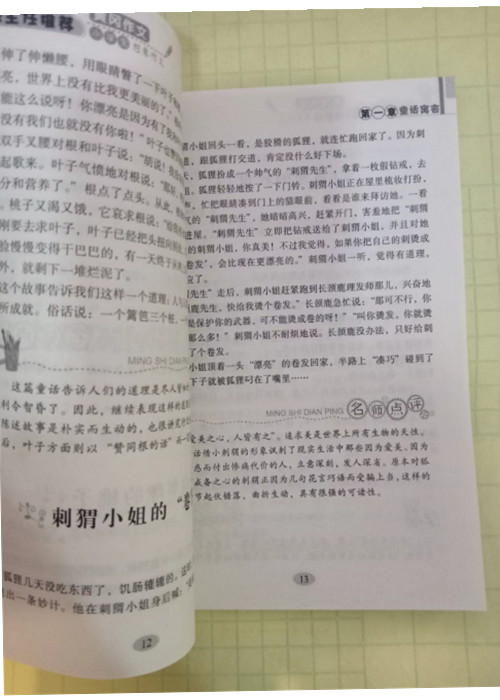 主任推荐
黄冈作文
伸了伸懒腰，用眼睛瞥了一下叶子
亮，世界上没有比我更美丽的了。
能这么说呀！你漂亮是因为有了我
没有我们也就没有你啦！”叶子也
双手叉腰对根和叶子说：“胡说！我
起歌来。叶子气愤地对根说：“那好，
分和营养了。”根点了点头。从此，
。桃子又渴又饿，它哀求根说：“给我
刚要去求叶子，叶子已经把头扭到
脸慢慢变得干巴巴的，有一天终于从
外，就剩下一堆烂泥了。
这个故事告诉我们这样一个道理：人与
所成就。俗话说：一个篱笆三个桩，一
MING SHI DIAN PING
这篇童话告诉人们的道理是尽人皆知
利令智昏了。因此，继续表现这样的
陈述故事是朴实而生动的，也很讲究
后，叶子方面则以“赞同根的话”
刺猬小姐的“卷
狐狸几天没吃东西了，饥肠辘辘的。这
出一条妙计。他在刺猬小姐身后喊：
12
第一章 童话寓言
猬小姐回头一看，是狡猾的狐狸，就连忙跑回家了。因为刺
道，跟狐狸打交道，肯定没什么好下场。
，狐狸扮成一个帅气的“刺猬先生”，拿着一枚假钻戒，去
。狐狸轻轻地按了一下门铃。刺猬小姐正在屋里梳妆打扮，
，忙把眼睛凑到门上的猫眼前，看看是谁来拜访她。一看
气的“刺猬先生”，她暗暗高兴，赶紧开门，害羞地把“刺猬
进屋。“刺猬先生”立即把钻戒送给了刺猬小姐，并且对她
的刺猬小姐，你真美！不过我觉得，如果你把自己的刺烫成
卷发’，会比现在更漂亮的。”刺猬小姐一听，觉得有道理，
应了。
先生”走后，刺猬小姐赶紧跑到长颈鹿理发师那儿，兴奋地
长颈鹿先生，快给我烫个卷发。”长颈鹿急忙说：“那可不行，你
是保护你的武器，可不能烫成卷的呀！”“叫你烫，你就烫
那么多！”刺猬小姐不耐烦地说。长颈鹿没办法，只好给刺
了个卷发。
小姐顶着一头“漂亮”的卷发回家，半路上“凑巧”碰到了
下子就被狐狸叼在了嘴里……
MING SHI DIAN PING 名师点评
爱美之心，人皆有之”。追求美是世界上所有生物的天性。
话借小刺猬的形象讽刺了现实生活中那些因为爱美、因为
惑而付出惨痛代价的人，立意深刻，发人深省。原本对狐
戒备之心的刺猬正因为几句花言巧语而受骗上当，这样的
节起伏错落，曲折生动，具有很强的可读性。
13